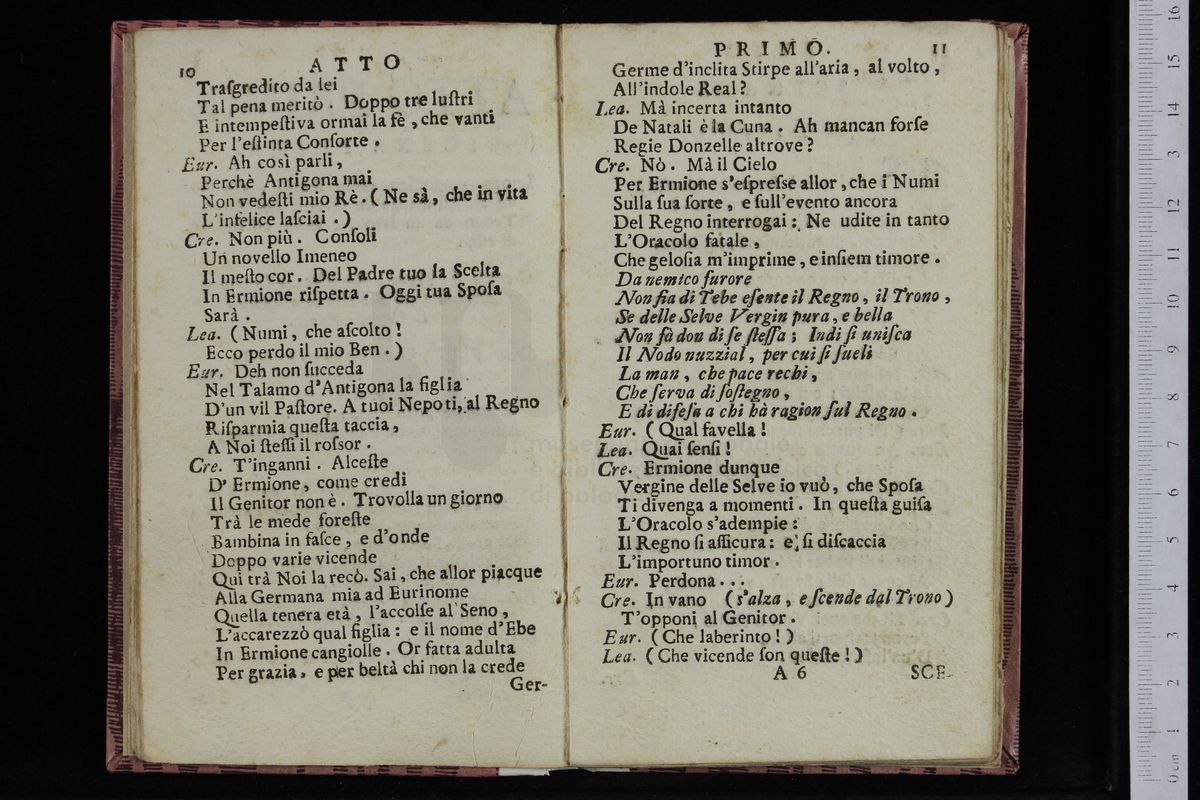 10 ATTO
Traſgredito da lei
Tal pena meritò . Doppo tre luſtri
E intempeſtiva ormai la fè , che vanti
Per l'eſtinta Conſorte .
Eur. Ah così parli ,
Perchè Antigona mai
Non vedeſti mio Rè . ( Ne sà , che in vita
L'infelice laſciai . )
Cre. Non più . Conſoli
Un novello Imeneo
Il meſto cor . Del Padre tuo la Scelta
In Ermione riſpetta . Oggi tua Spoſa
Sarà .
Lea. ( Numi , che aſcolto !
Ecco perdo il mio Ben . )
Eur. Deh non ſucceda
Nel Talamo d'Antigona la figlia
D'un vil Paſtore. A tuoi Nepoti, al Regno
Riſparmia queſta taccia ,
A Noi ſteſſi il roſsor .
Cre. T'inganni . Alceſte
D' Ermione , come credi
Il Genitor non è . Trovolla un giorno
Trà le mede foreſte
Bambina in faſce , e d'onde
Doppo varie vicende
Qui trà Noi la recò. Sai , che allor piacque
Alla Germana mia ad Eurinome
Quella tenera età , l'accolſe al Seno ,
L'accarezzò qual figlia : e il nome d'Ebe
In Ermione cangiolle . Or fatta adulta
Per grazia , e per beltà chi non la crede
Ger-
PRIMO. 11
Germe d'inclita Stirpe all'aria , al volto ,
All'indole Real ?
Lea. Mà incerta intanto
De Natali è la Cuna . Ah mancan forſe
Regie Donzelle altrove ?
Cre. Nò . Mà il Cielo
Per Ermione s'eſpreſse allor , che i Numi
Sulla ſua ſorte , e ſull'evento ancora
Del Regno interrogai : Ne udite in tanto
L'Oracolo fatale ,
Che geloſia m'imprime , e inſiem timore .
Da nemico furore
Non fia di Tebe eſente il Regno , il Trono ,
Se delle Selve Vergin pura , e bella
Non fà don di ſe ſteſſa ; Indi ſi uniſca
Il Nodo nuzzial , per cui ſi ſueli
La man , che pace rechi ,
Che ſerva di ſoſtegno ,
E di difeſa a chi hà ragion ſul Regno .
Eur. ( Qual favella !
Lea. Quai ſenſi !
Cre. Ermione dunque
Vergine delle Selve io vuò , che Spoſa
Ti divenga a momenti . In queſta guiſa
L'Oracolo s'adempie :
Il Regno ſi aſſicura : e ſi diſcaccia
L'importuno timor .
Eur. Perdona . . .
Cre. In vano ( s'alza , e ſcende dal Trono )
T'opponi al Genitor .
Eur. ( Che laberinto ! )
Lea. ( Che vicende ſon queſte ! )
A 6 SCE-